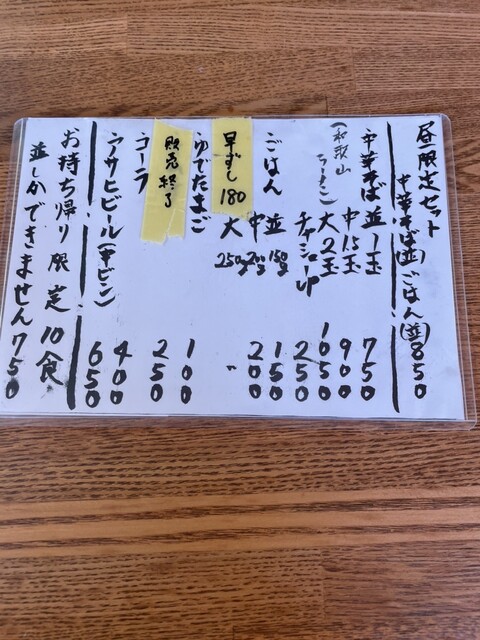 昼限定セット
中華そば(並)ごはん(並)850
中華そば 並1玉 750
(和歌山 中1.5玉 900
ラーメン) 大2玉 1050
チャシューup 250
ごはん 並 150g 150
中 200
大 250g 〃
早ずし 180
ゆでたまご 100
販売終了 250
コーラ 400
アサヒビール(中ビン) 650
お持ち帰り限定10食
並しかできません750